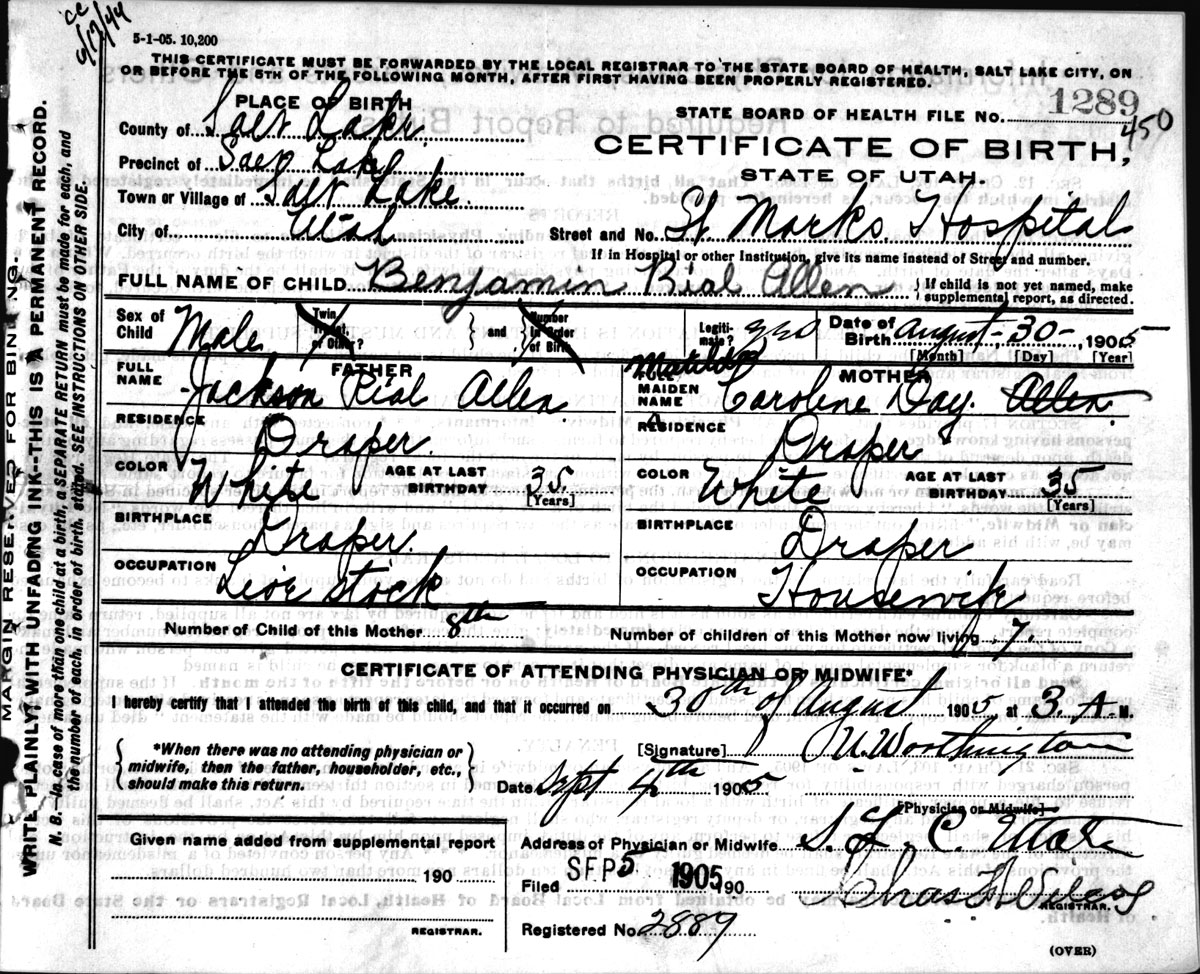 cc
6/17/44
5-1-05. 10,200
THIS CERTIFICATE MUST BE FORWARDED BY THE LOCAL REGISTRAR TO THE STATE BOARD OF HEALTH, SALT LAKE CITY, ON
OR BEFORE THE 5TH OF THE FOLLOWING MONTH, AFTER FIRST HAVING BEEN PROPERLY REGISTERED.
PLACE OF BIRTH
STATE BOARD OF HEALTH FILE No. 1289
450
County of Salt Lake.
CERTIFICATE OF BIRTH,
Precinct of Salt Lake
STATE OF UTAH.
Town or Village of Salt Lake.
City of Utah
Street and No. St Marks Hospital
If in Hospital or other Institution, give its name instead of Street and number.
FULL NAME OF CHILD Benjamin Rial Allen { If child is not yet named, make supplemental report, as directed.
Sex of Child Male Twin Triplet, or Other? } and { Number in Order of Birth Legitimate? yes Date of Birth August 30 1905
[Month] [Day] [Year]
FATHER
MOTHER
FULL NAME Jackson Rial Allen
FULL MAIDEN NAME Matilda Caroline Day. Allen
RESIDENCE Draper.
RESIDENCE Draper
COLOR White AGE AT LAST BIRTHDAY 35. [Years]
COLOR White AGE AT LAST BIRTHDAY 35 [Years]
BIRTHPLACE Draper.
BIRTHPLACE Draper
OCCUPATION Live Stock
OCCUPATION Housewife
Number of Child of this Mother 8th
Number of children of this Mother now living 7.
CERTIFICATE OF ATTENDING PHYSICIAN OR MIDWIFE*
I hereby certify that I attended the birth of this child, and that it occurred on 30th of August 1905, at 3. A. M.
{ *When there was no attending physician or midwife, then the father, householder, etc., should make this return. }
[Signature] Worthington
Date Sept 4th 1905
[Physician or Midwife]
Given name added from supplemental report
Address of Physician or Midwife S. L. C. Utah
190
Filed SEP 5 1905 190 Chas Wilcox
REGISTRAR.
REGISTRAR.
Registered No. 2889
(OVER)
MARGIN RESERVED FOR BINDING.
WRITE PLAINLY WITH UNFADING INK---THIS IS A PERMANENT RECORD.
N. B.--In case of more than one child at a birth, a SEPARATE RETURN must be made for each, and
the number of each, in order of birth, stated. SEE INSTRUCTIONS ON OTHER SIDE.